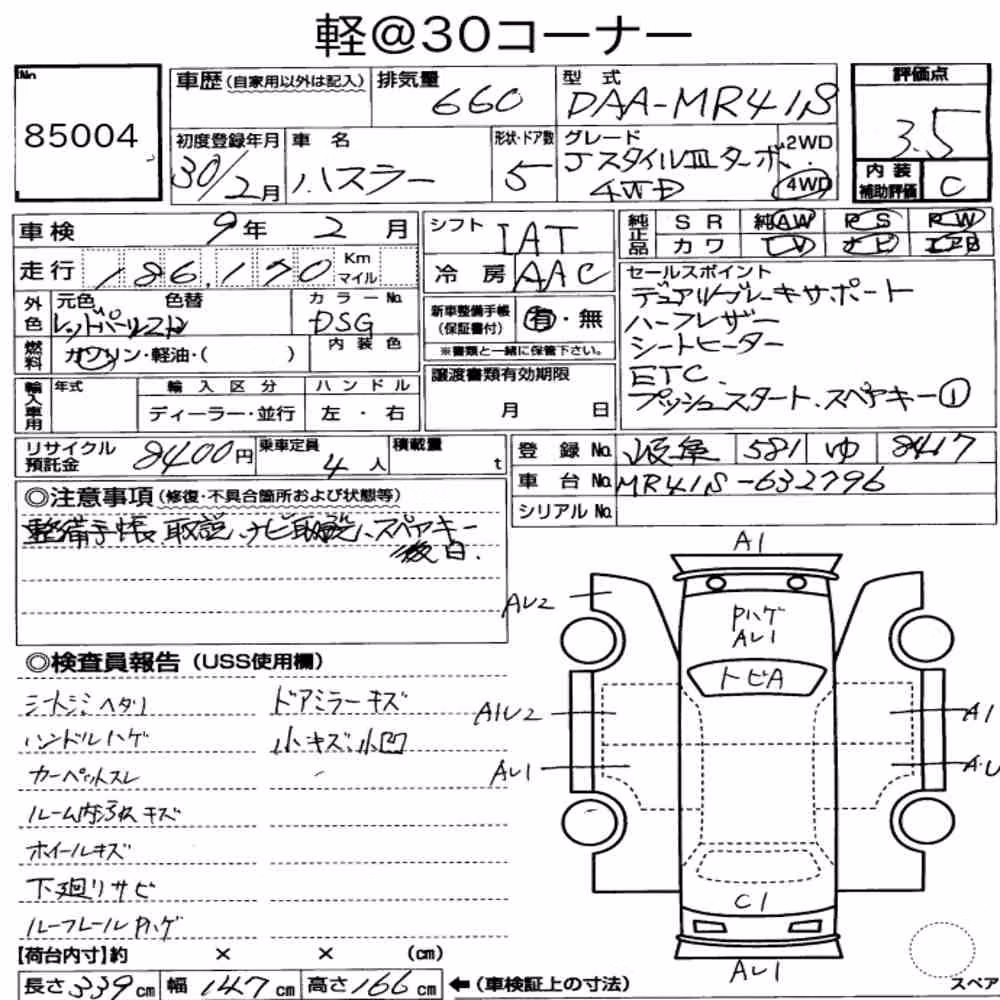 軽@30コーナー
No.
85004
車歴(自家用以外は記入)
排気量
660
型式
DAA-MR41S
評価点
3.5
初度登録年月
30/2月
車名
ハスラー
形状・ドア数
5
グレード
JスタイルⅢターボ
4WD
2WD
4WD
内装
補助評価
C
車検 9年 2月
シフト IAT
純正品
SR 純AW PS PW
カワ TV ナビ エアB
走行 186,170 Km
マイル
冷房 AAC
セールスポイント
デュアルブレーキサポート
ハーフレザー
シートヒーター
ETC.
プッシュスタート、スペヤキー①
外色
元色 色替
レッドパール2トン
カラーNo.
DSG
新車整備手帳
(保証書付)
有・無
※書類と一緒に保管下さい。
燃料
ガソリン・軽油・( )
内装色
輸入車用
年式
輸入区分
ハンドル
ディーラー・並行
左・右
譲渡書類有効期限
月 日
リサイクル
預託金
8400円
乗車定員
4人
積載量
t
登録No. 岐阜 581 ゆ 8417
車台No. MR41S-632796
シリアルNo.
◎注意事項(修復・不具合箇所および状態等)
整備手帳、取説、ナビ取説、スペヤキー
後日.
◎検査員報告(USS使用欄)
シートシミ ヘタリ
ドアミラーキズ
ハンドルハゲ
小キズ、小凹
カーペットスレ
ルーム内汚れ キズ
ホイールキズ
下廻りサビ
ルーフレールPハゲ
A1
AU2
Pハゲ
AU1
トビA
A1U2
A1
AU1
A.U
C1
AU1
スペア
【荷台内寸】約 × × (cm)
長さ339cm 幅147cm 高さ166cm ←(車検証上の寸法)